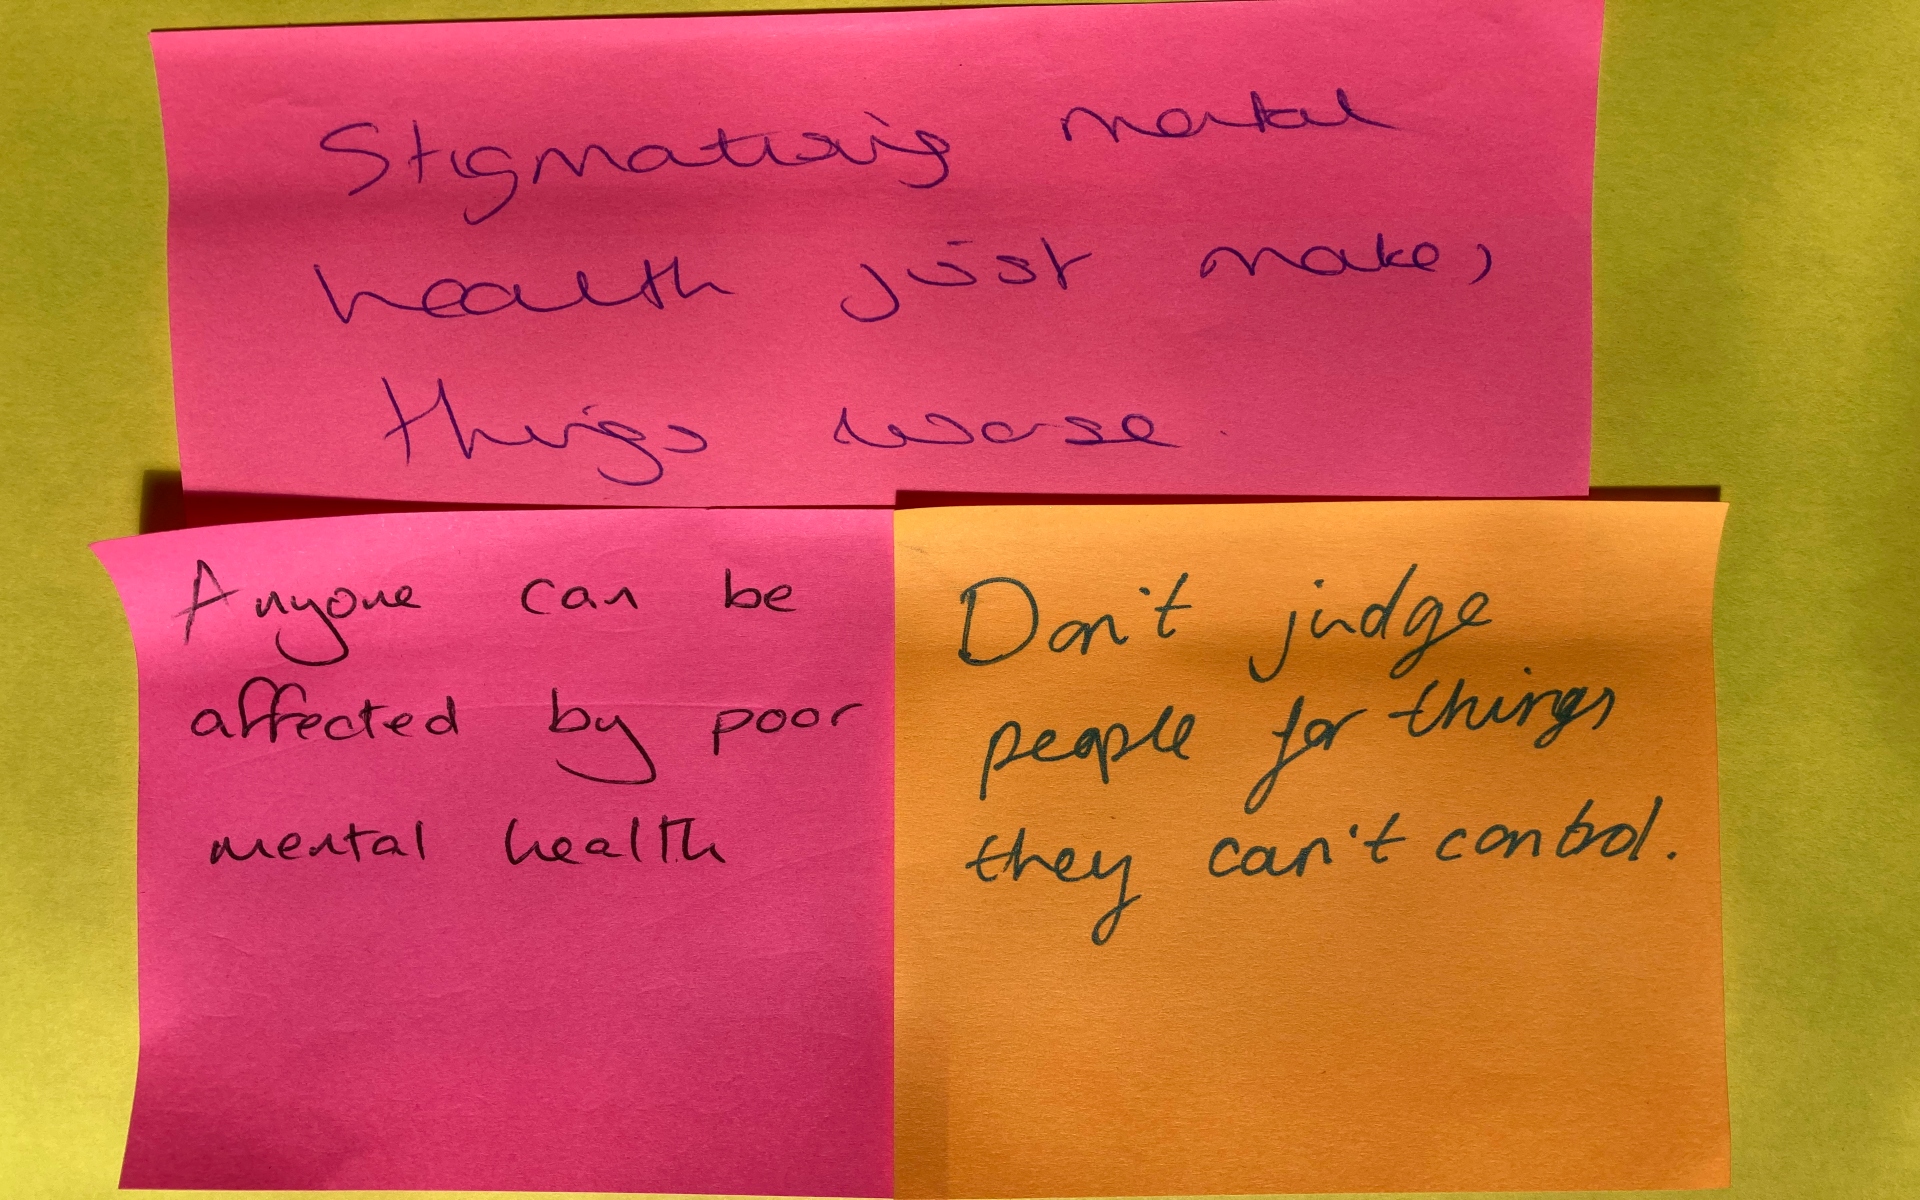 Stigmatising mental
health just makes
things worse.
Anyone can be
affected by poor
mental health
Don't judge
people for things
they can't control.